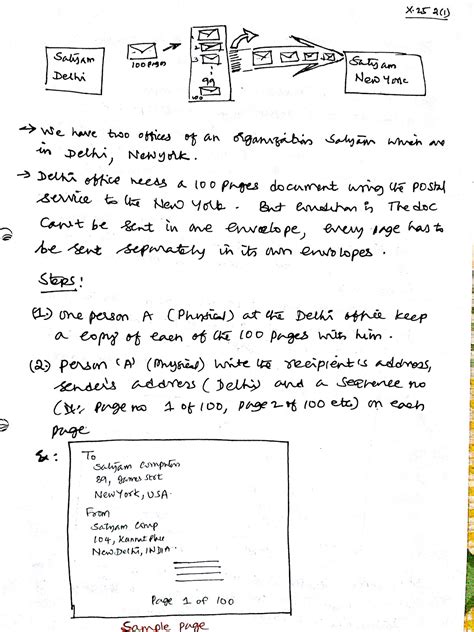 X.25 2(1)
Satyam
Delhi
100 pages
1
2
3
99
100
Satyam
New York
→ We have two offices of an organization Satyam which are
in Delhi, Newyork.
→ Delhi office needs a 100 pages document using the postal
service to the New York. But condition is The doc
Can't be sent in one envelope, every page has to
be sent separately in its own envolopes.
Steps:
(1.) One person A (Physical) at the Delhi office keep
a copy of each of the 100 pages with him.
(2.) Person 'A' (Physical) write the recipient's address,
sender's address (Delhi) and a Sequence no
page no 1 of 100, page 2 of 100 etc) on each
page
To
Satyam Computers
89, James
New York, USA.
From
Satyam Comp
104, Kannat Place
New Delhi, INDIA.
Page 1 of 100
Sample page